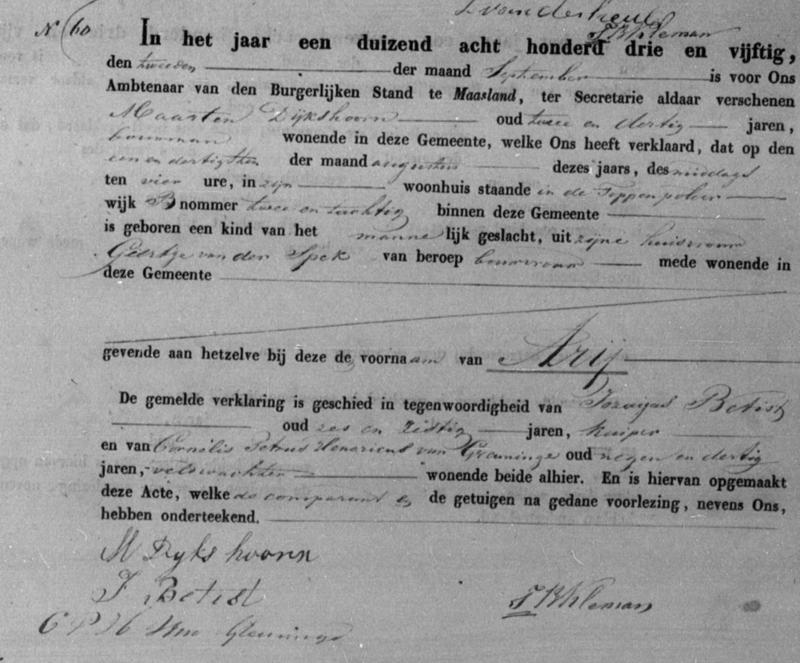 L van der heul
J B Kleman
N 60
In het jaar een duizend acht honderd drie en vijftig,
den tweeden der maand September is voor Ons
Ambtenaar van den Burgerlijken Stand te Maasland, ter Secretarie aldaar verschenen
Maarten Dijkshoorn oud twee en dertig jaren,
bouwman wonende in deze Gemeente, welke Ons heeft verklaard, dat op den
een en dertigsten der maand augustus dezes jaars, des middags
ten vier ure, in zijn woonhuis staande in de Foppenpolder
wijk B nommer twee en tachtig binnen deze Gemeente
is geboren een kind van het mannelijk geslacht, uit zijne huisvrouw
Geertje van der Spek van beroep bouwvrouw mede wonende in
deze Gemeente
gevende aan hetzelve bij deze de voornaam van Arij
De gemelde verklaring is geschied in tegenwoordigheid van Betist
oud zes en zestig jaren, kuiper
en van Cornelis Petrus van oud negen en dertig
jaren, veldwachter wonende beide alhier. En is hiervan opgemaakt
deze Acte, welke de comparant en de getuigen na gedane voorlezing, nevens Ons,
hebben onderteekend.
M Dijkshoorn
J Betist
J B Kleman
C P H